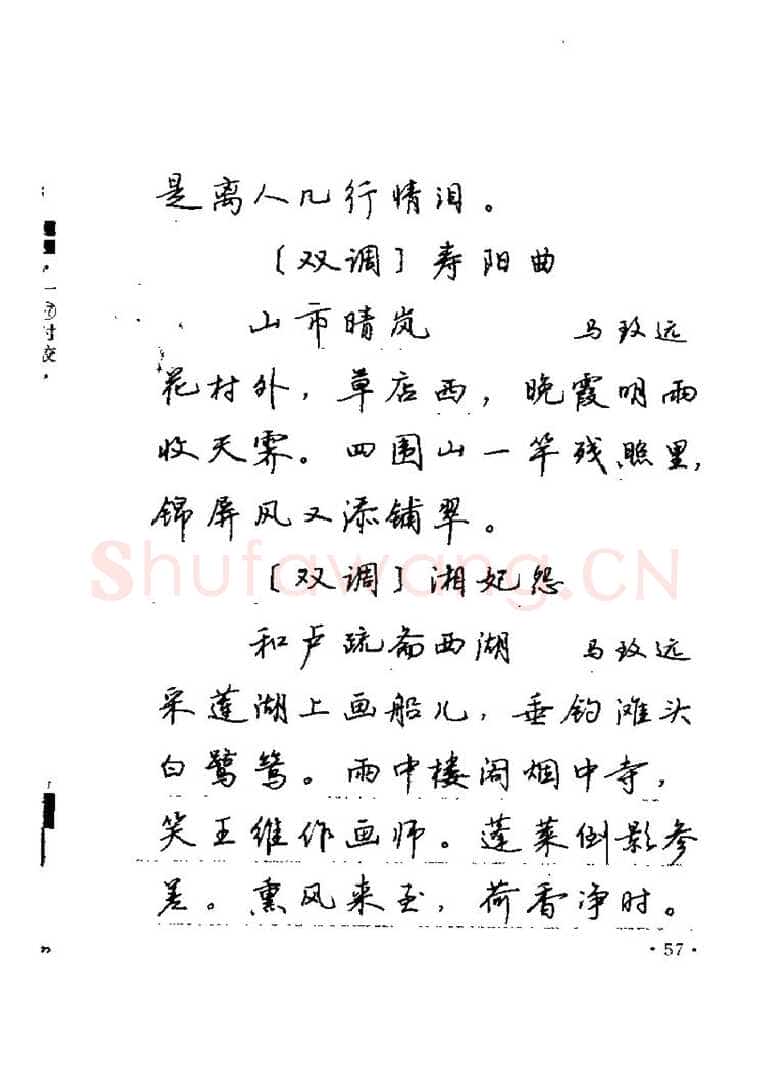 是离人几行情泪。
〔双调〕寿阳曲
山市晴岚 马致远
花村外，草店西，晚霞明雨
收天霁。四围山一竿残照里，
锦屏风又添铺翠。
Shufawang.CN
〔双调〕湘妃怨
和卢疏斋西湖 马致远
采莲湖上画船儿，垂钓滩头
白鹭鸶。雨中楼阁烟中寺，
笑王维作画师。蓬莱倒影参
差。熏风来至，荷香净时。
·57·